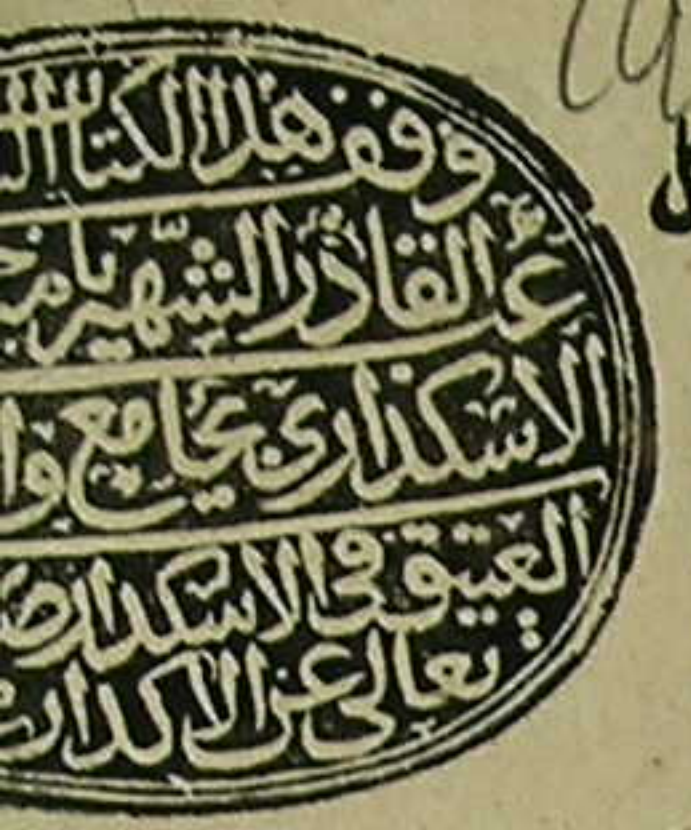 وقف هذا الكتاب
عبد القادر الشهير بامير خـ
الاسكداري بجامع وا
العتيق في الاسكدار صا
تعالى عن الاكدار